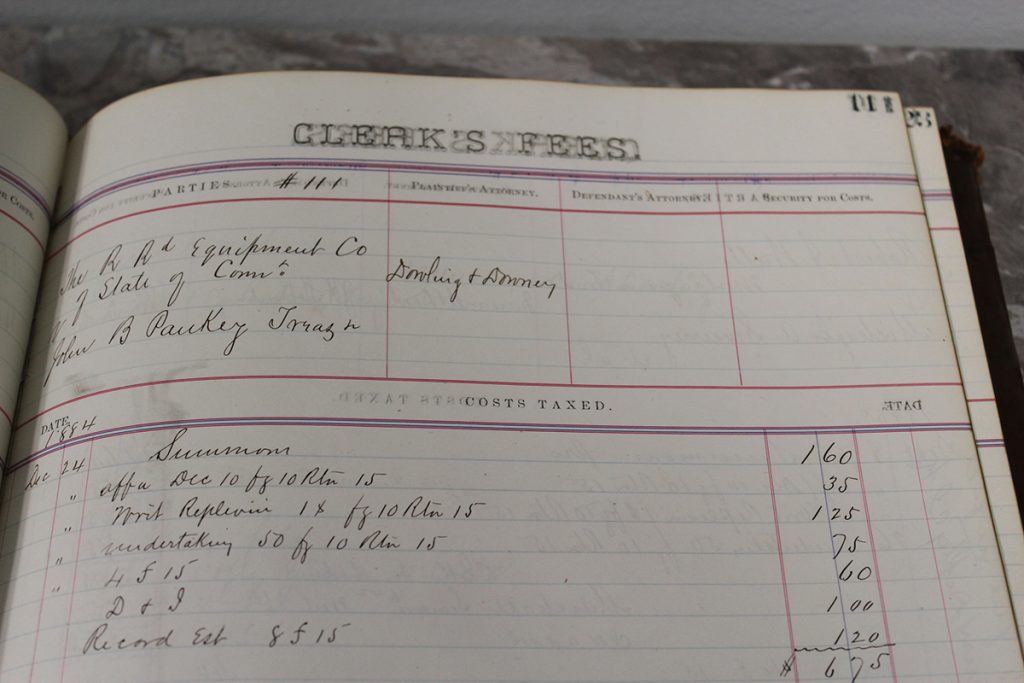 111
CLERK'S FEES.
PARTIES #111 PLAINTIFF'S ATTORNEY. DEFENDANT'S ATTORNEY SECURITY FOR COSTS.
The R Rd Equipment Co
of State of Conn. Dowling & Downey
John B Pankey
COSTS TAXED.
DATE
1884
Dec 24 Summons 1 60
" affa Dec 10 fg 10 Rtn 15 35
" Writ Replevin 1 fg 10 Rtn 15 1 25
" undertaking 50 fg 10 Rtn 15 75
" 4 f 15 60
D & I 1 00
Record Est 8 f 15 1 20
$ 6 75